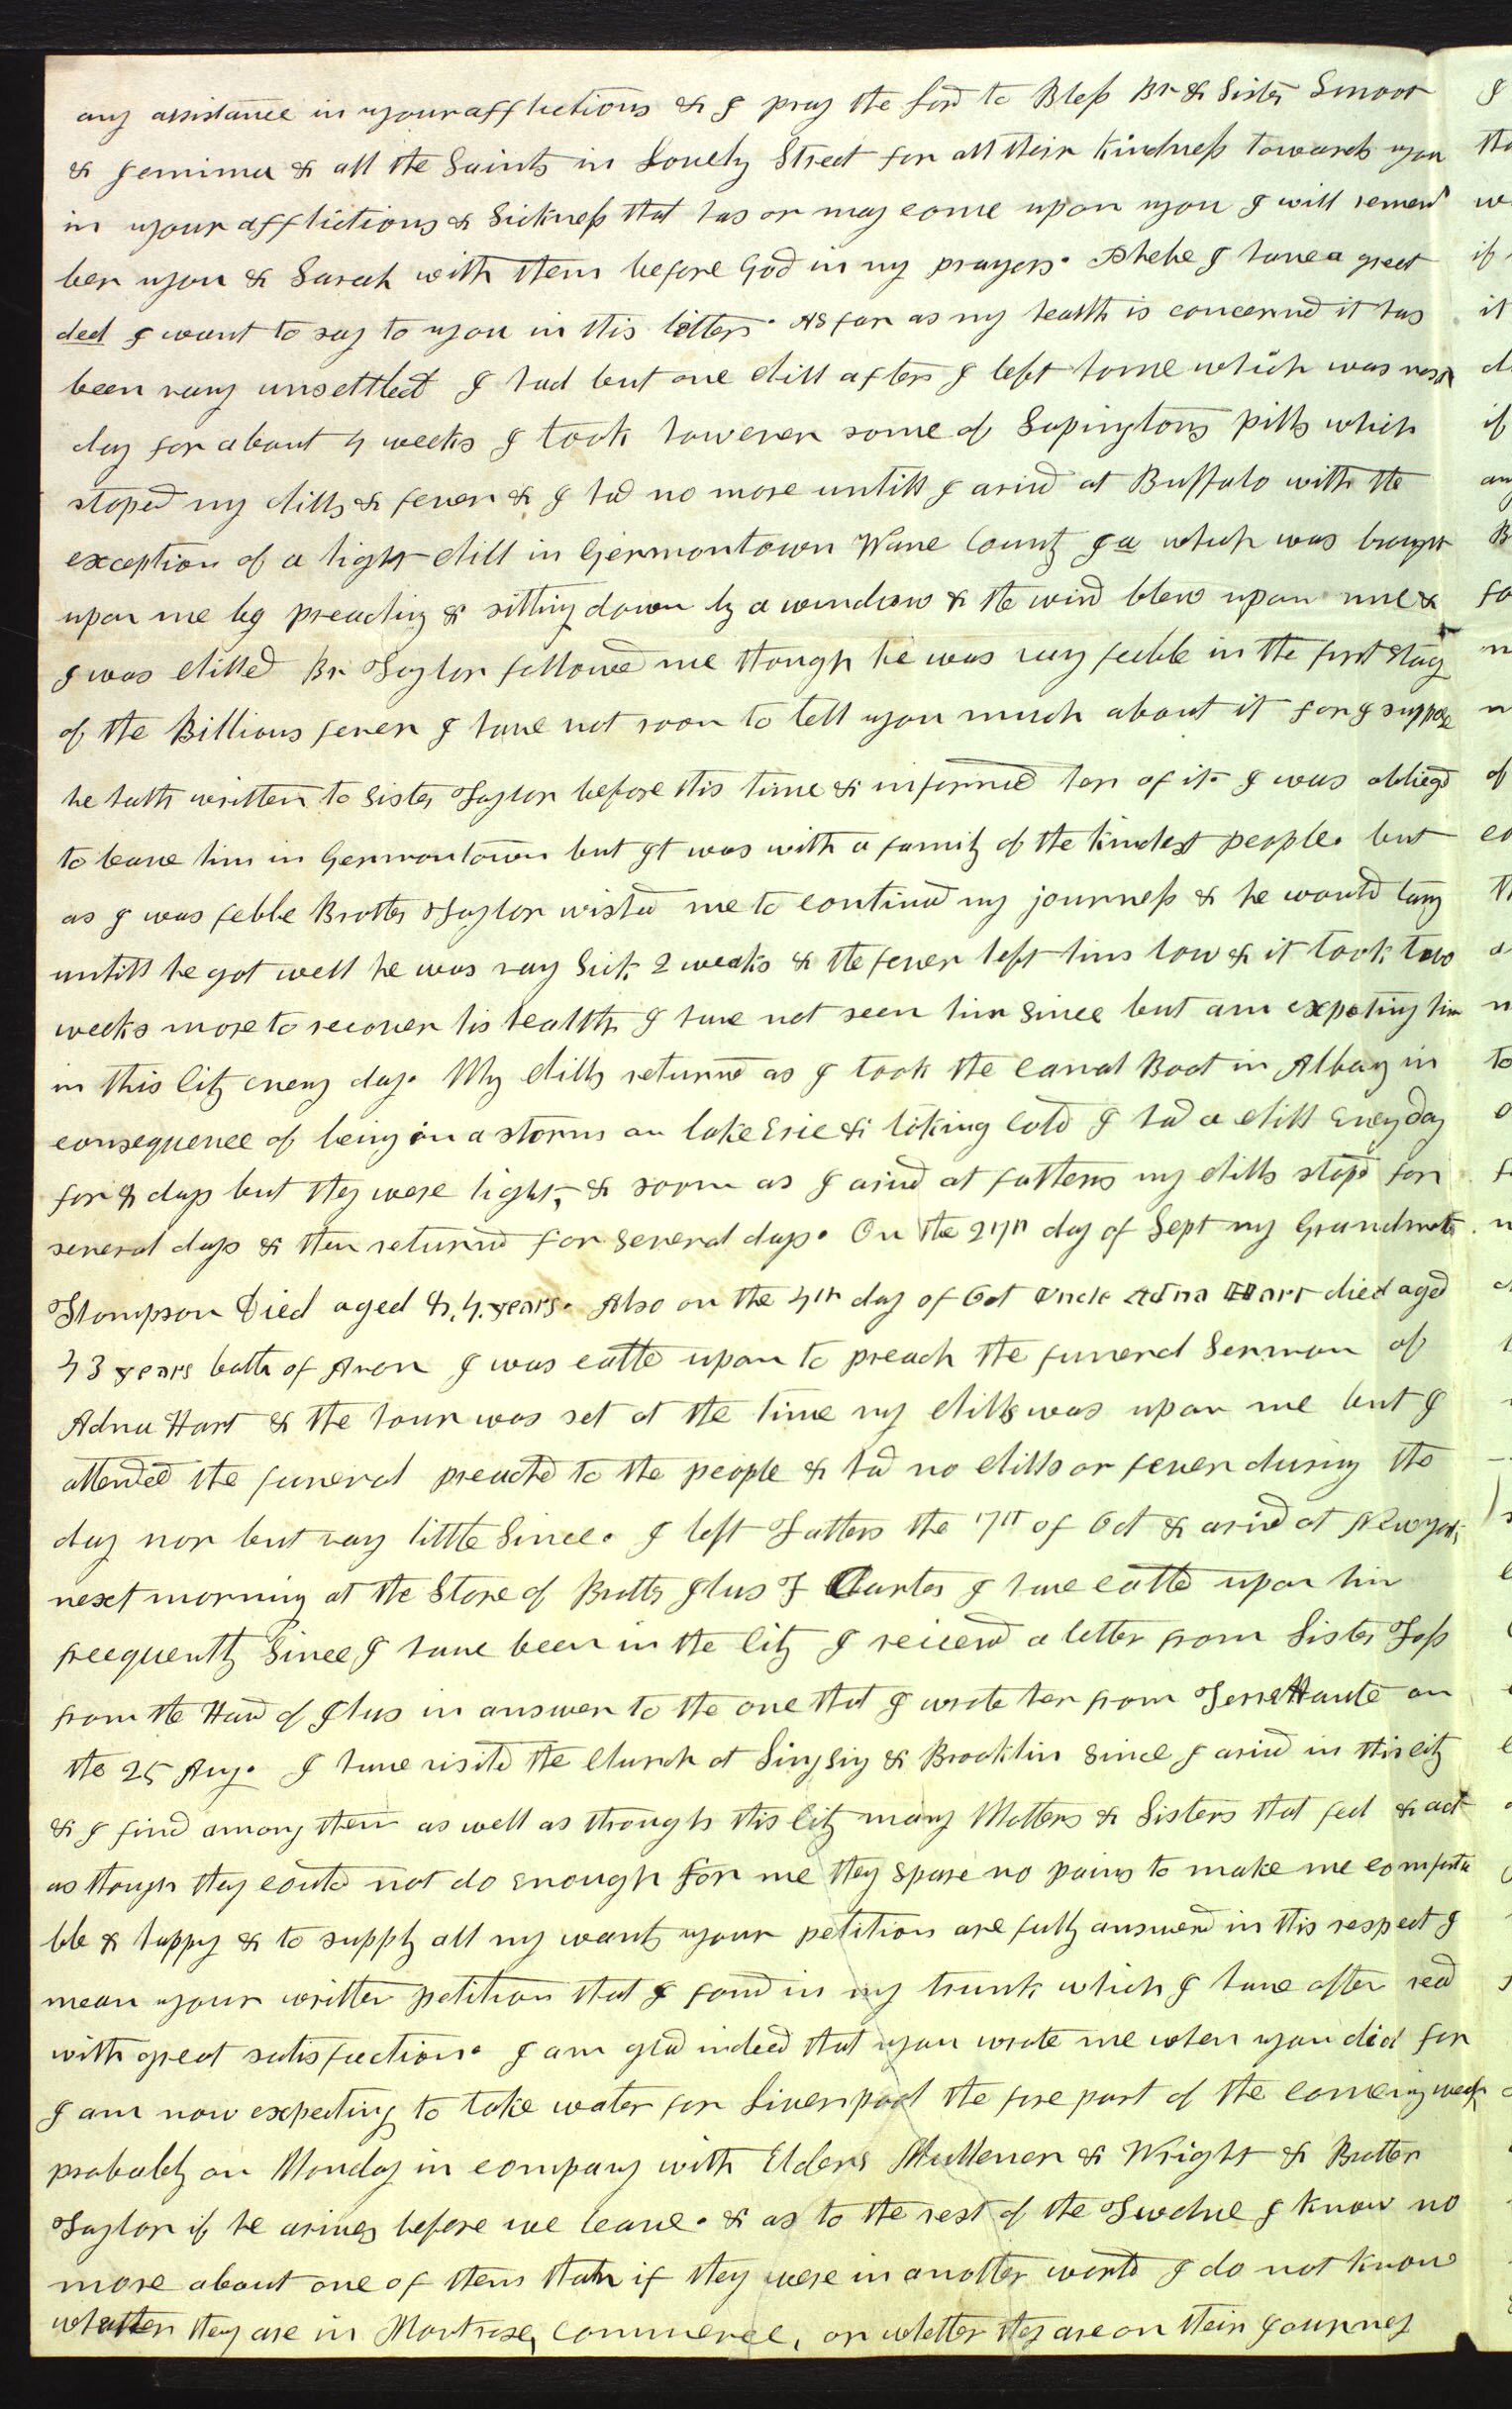 any assistance in your afflictions & I pray the Lord to Bless Br & Sister Smoot
& Jemima & all the Saints in Lovely Street for all their kindness towards you
in your afflictions & Sickness that has or may come upon you I will remem
ber you & Sarah with them before God in my prayers. Phebe I have a great
deel I want to say to you in this letter. As far as my health is concernd it has
been vary unsettled I had but one chill after I left home which was
day for about 4 weeks I took however some of Sapingtons pills which
stoped my chills & fever & I had no more untill I arivd at Buffalo with the
exception of a light chill in Germontown Wane County Ia which was brought
upon me by preaching & sitting down by a window & the wind blew upon me &
I was chilled Br Taylor followed me though he was vary feeble in the first stag
of the Billious fever I have not room to tell you much about it for I suppose
he hath written to Sister Taylor before this time & informed her of it. I was obliegd
to leave him in Germontown but yt was with a family of the kindest people. but
as I was feble Brother Taylor wished me to continue my journess & he would tary
untill he got well he was vary Sick 2 weeks & the fever left him low & it took two
weeks more to recover his health I have not seen him since but am expeting him
in this City eveny day. My chills returnd as I took the canal Boat in Albay in
consequence of being in a storm on lake Erie & taking cold I had a chill Evey day
for 8 days but they were light, & soon as I arivd at fathers my chills stopd for
several days & then returnd for several days. On the 27th day of Sept my Grandmoth
Thompson Died aged 84 years. Also on the 4th day of Oct Uncle Adna Hart died aged
43 years both of Avon I was calld upon to preach the funeral Sermon of
Adna Hart & the hour was set at the time my chills was upon me but I
attended the funeral preachd to the people & had no chills or fever during the
day nor but vary little Since. I left Fathers the 17th of Oct & arivd at New york
next morning at the Store of Brother Ilus F Carter I have calld upon him
freequently Since I have been in the City I recieved a letter from Sister Foss
from the Hand of Ilus in answer to the one that I wrote her from Terre Haute on
the 25 Aug. I have visitd the Church at Sing Sing & Brooklin Since I arivd in this city
& I find among them as well as through this City many Mothers & Sisters that feel & act
as though they could not do enough for me they spare no pains to make me comforta
ble & happy & to supply all my wants your petition are fully answerd in this respect I
mean your written petition that I found in my trunk which I have often read
with great satisfaction. I am glad indeed that you wrote me when you did for
I am now expecting to take water for Liverpool the fore part of the comeing week
probably on Monday in company with Elders Mullener & Wright & Brother
Taylor if he arives before we leave. & as to the rest of the Twelve I know no
more about one of them than if they were in another world I do not know
whether they are in Montrose, Commerce, or whether they are on their Journey